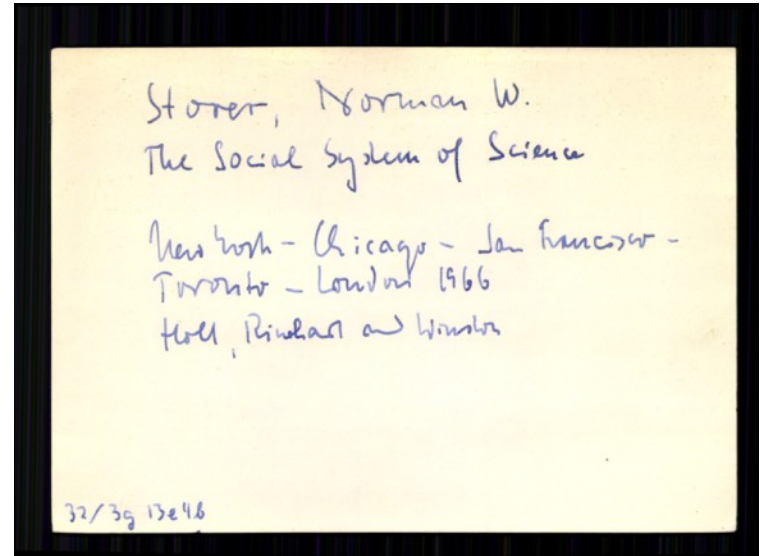 Storer, Norman W.
The Social System of Science
New York - Chicago - San Francisco -
Toronto - London 1966
Holt, Rinehart and Winston
32/3g 13e46